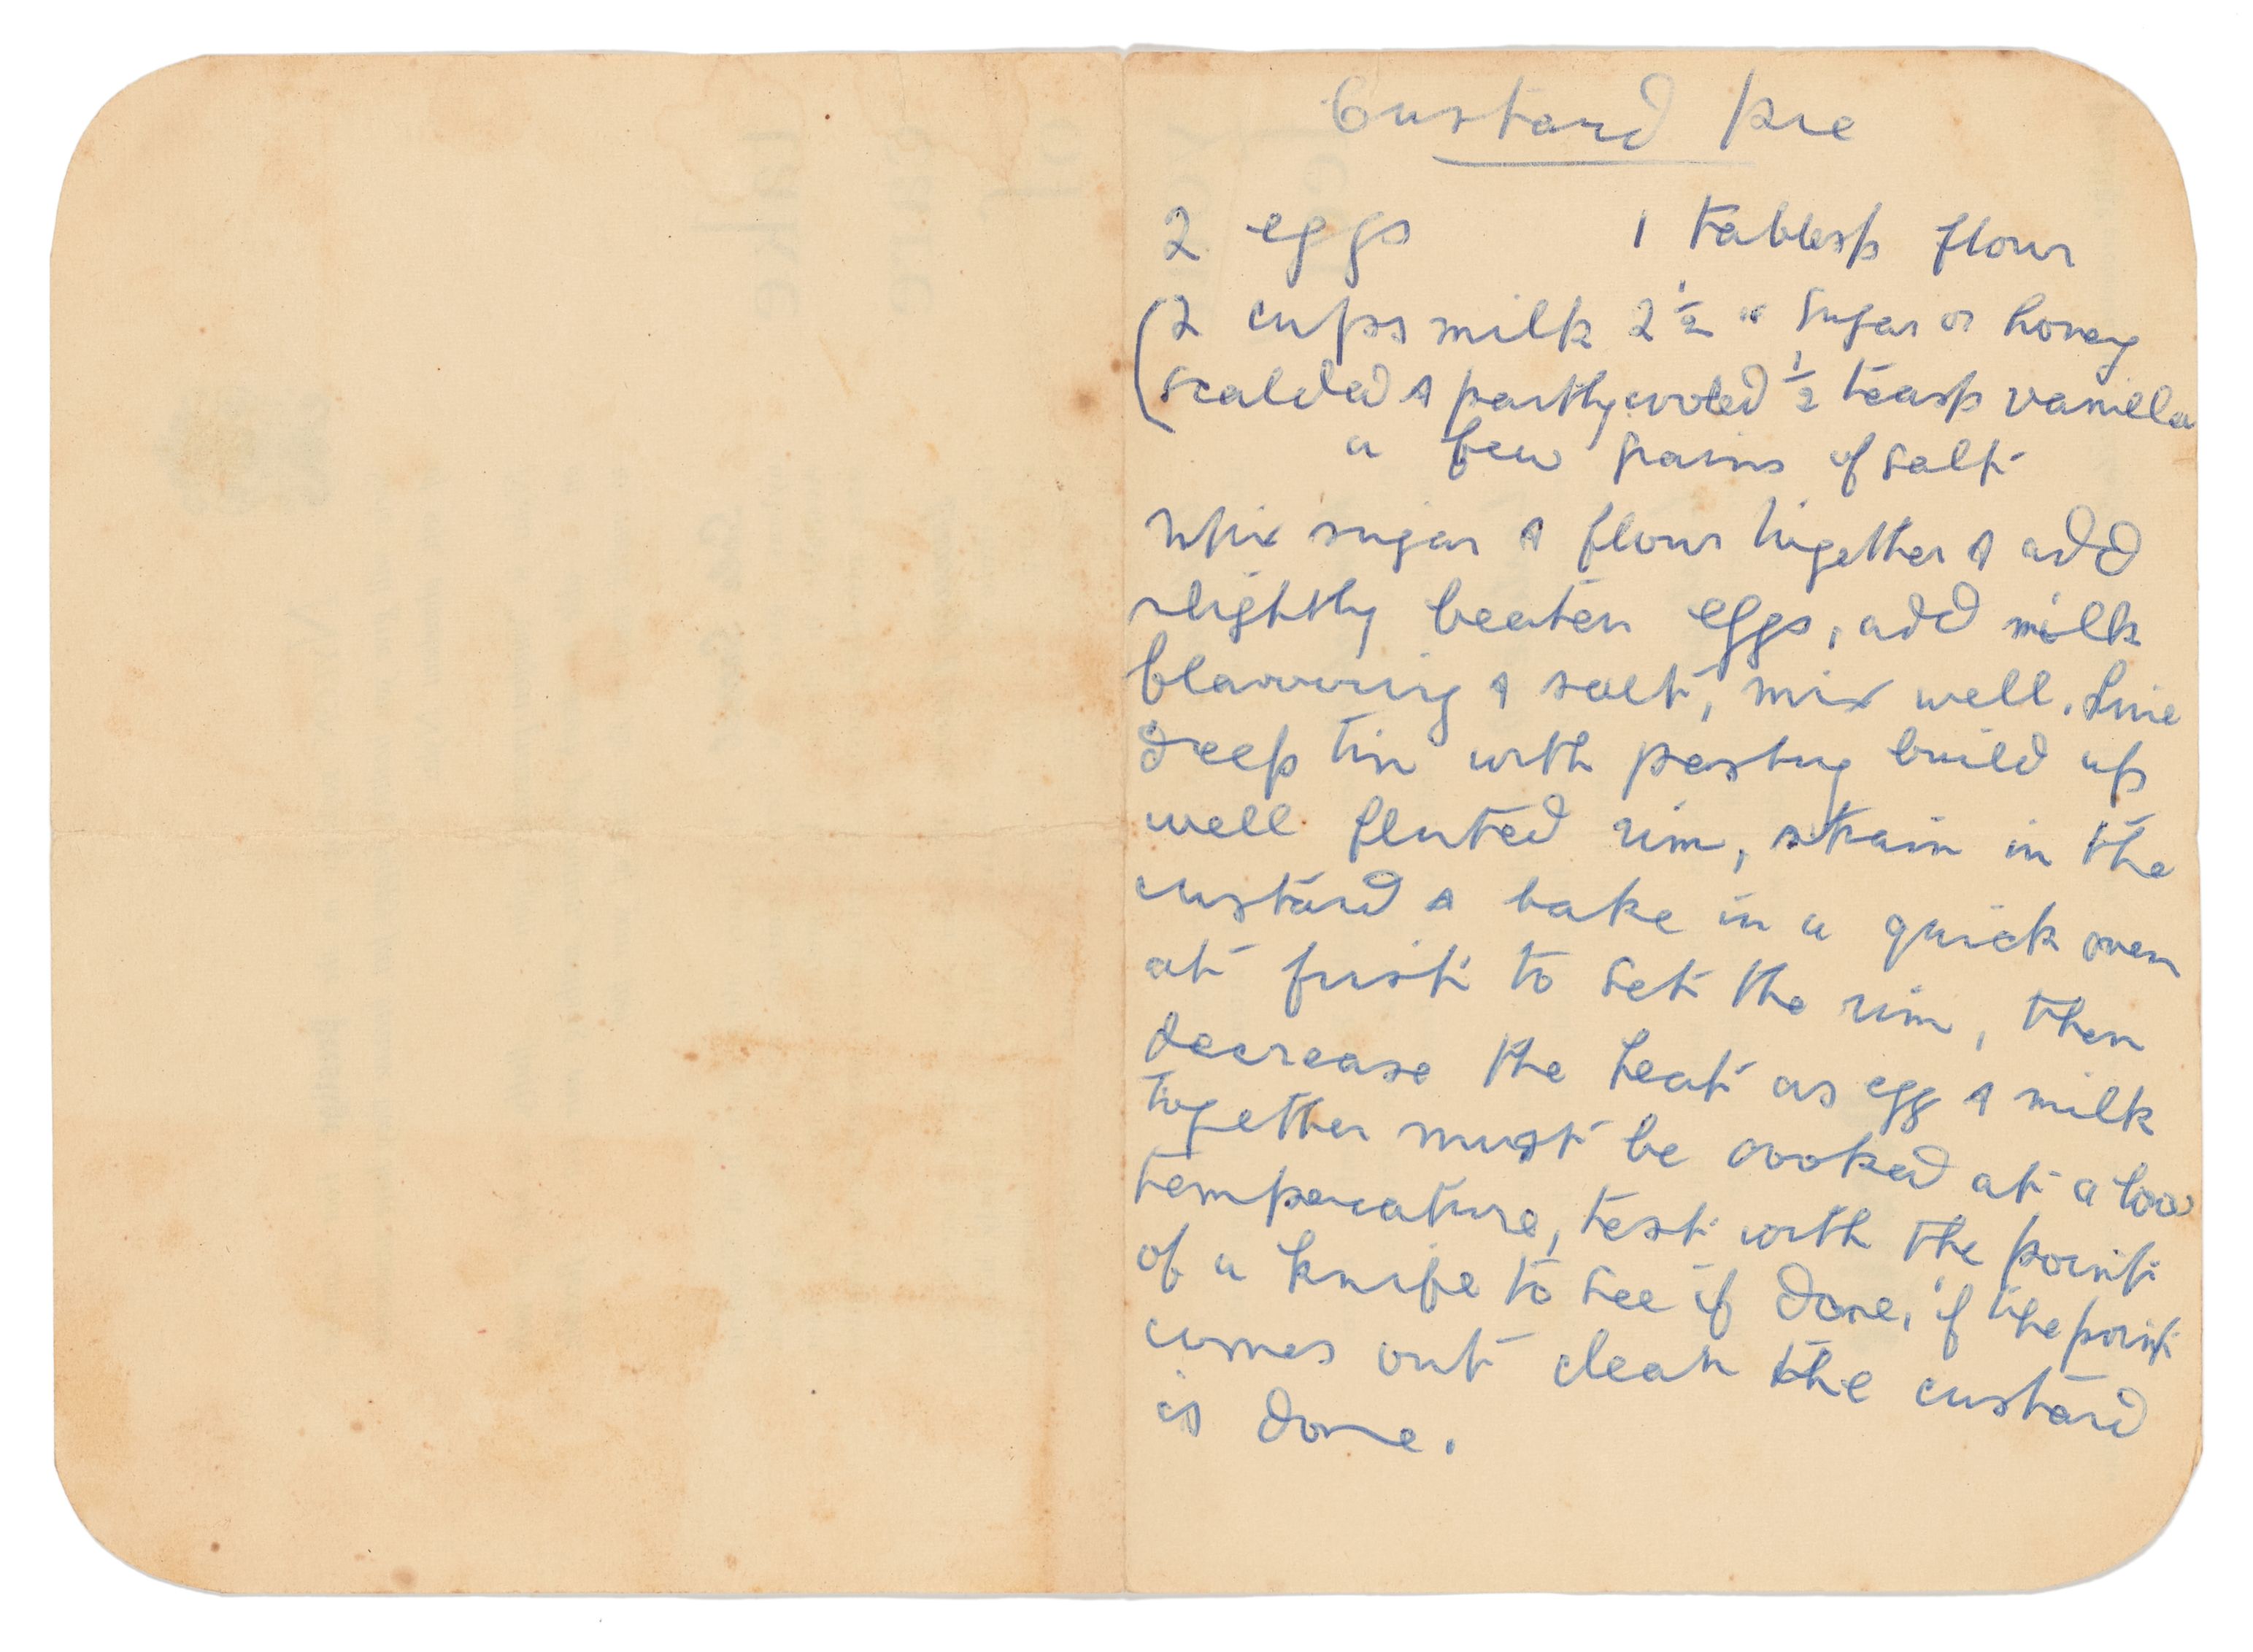 Custard Pie
2 eggs 1 tablesp flour
(2 cups milk 2 1/2 " sugar or honey
(scalded & partly cooled 1/2 teasp vanilla
a few grains of salt
Mix sugar & flour together & add
slightly beaten eggs, add milk
flavouring & salt, mix well. Line
deep tin with pastry build up
well fluted rim, strain in the
custard & bake in a quick oven
at first to set the rim, then
decrease the heat as egg & milk
together must be cooked at a low
temperature, test with the point
of a knife to see if done, if the point
comes out clean the custard
is done.